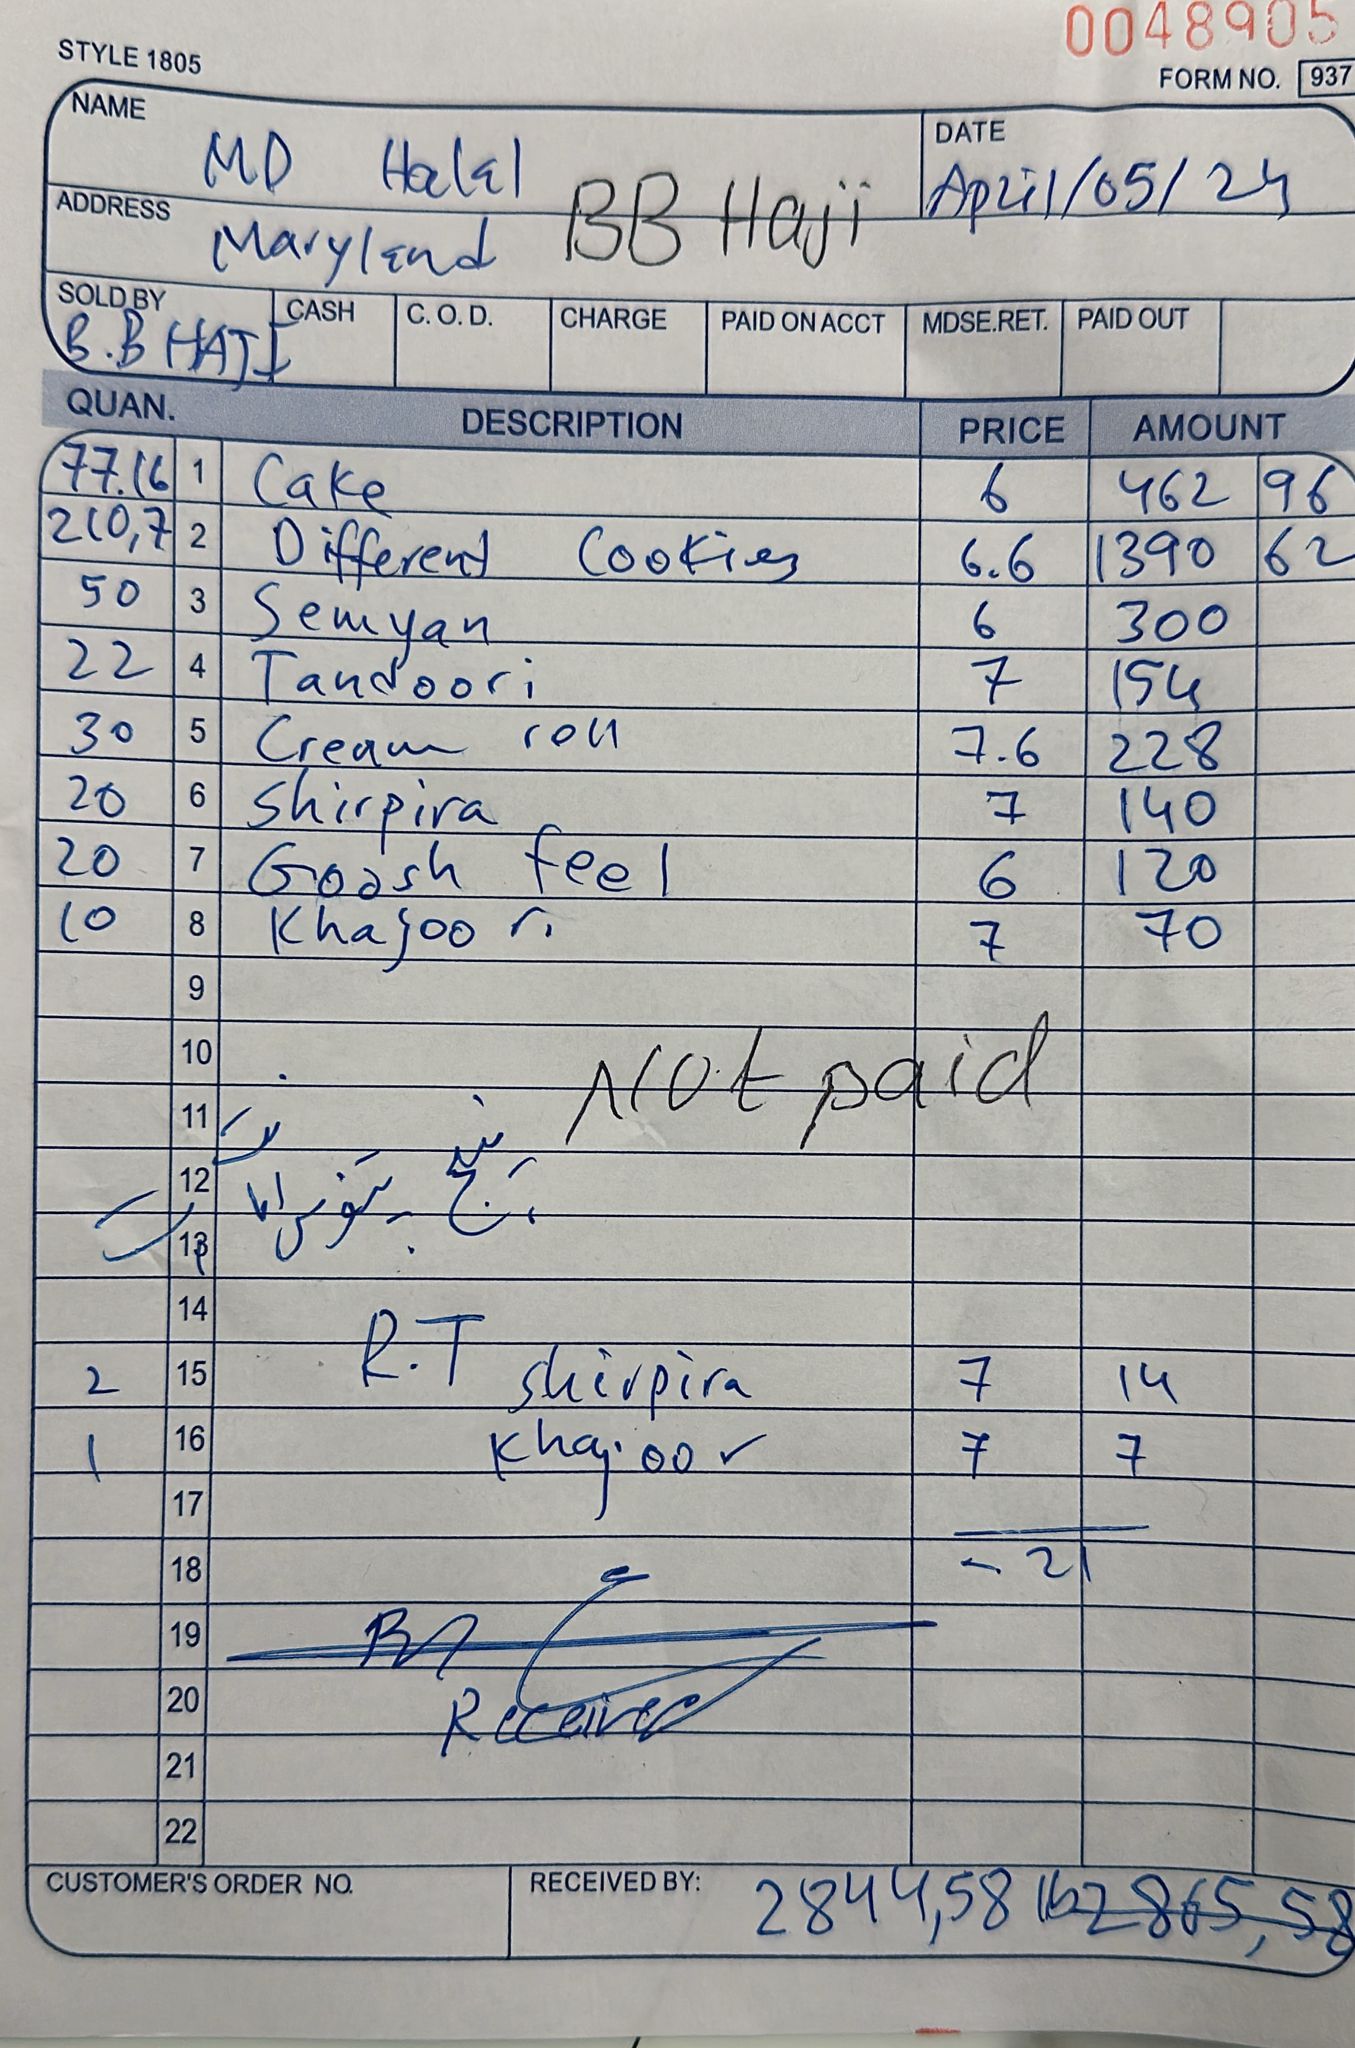 0048905
STYLE 1805
FORM NO. 937
NAME MD Halal
DATE April/05/24
ADDRESS Maryland
BB Haji
SOLD BY B.B HAJI CASH C. O. D. CHARGE PAID ON ACCT MDSE.RET. PAID OUT
QUAN. DESCRIPTION PRICE AMOUNT
77.16 1 Cake 6 462 96
210,7 2 Different Cookies 6.6 1390 62
50 3 Semyan 6 300
22 4 Tandoori 7 154
30 5 Cream roll 7.6 228
20 6 Shirpira 7 140
20 7 Goash feel 6 120
10 8 Khajoor 7 70
9
10 Not paid
11
12
13
14 R.T
2 15 shirpira 7 14
1 16 Khajoor 7 7
17
18 - 21
19
20 Received
21
22
CUSTOMER'S ORDER NO. RECEIVED BY: 2844,58 2865,58